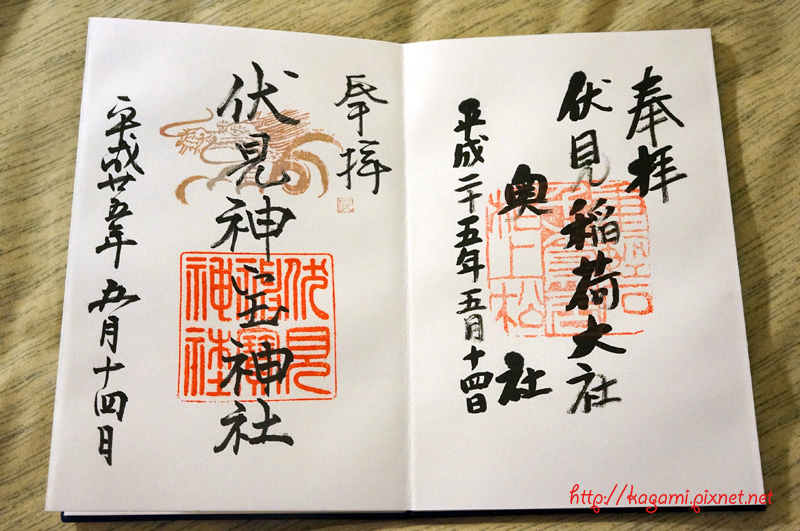 奉拝
伏見稲荷大社
奥社
平成二十五年五月十四日
奉拝
伏見神宝神社
平成廿五年五月十四日
伏見神寳神社
http://kagami.pixnet.net